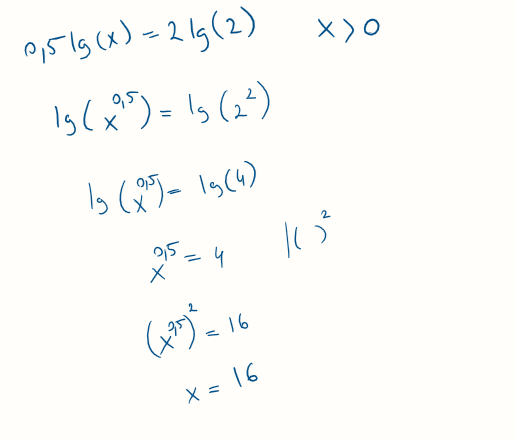 0,5 lg(x) = 2 lg(2) x > 0
lg(x^0,5) = lg(2^2)
lg(x^0,5) = lg(4)
x^0,5 = 4 |( )^2
(x^0,5)^2 = 16
x = 16